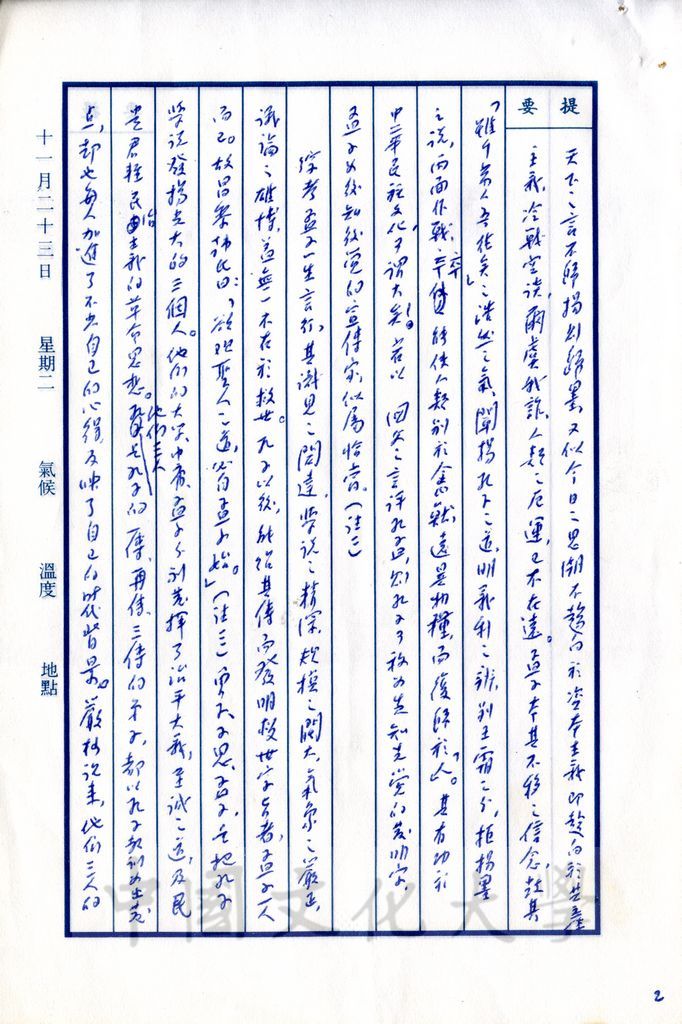 提要
天下之言不歸楊則歸墨，又似今日之思潮不趨向於資本主義即趨向於共產
主義，冷戰空談，爾虞我詐，人類之厄運，已不在遠。孟子本其不移之信念，鼓其
「雖千萬人吾往矣」之浩然之氣，闡揚孔子之道，明義利之辨，別王霸之分，拒楊墨
之說，兩面作戰，卒能使人類別於禽獸，遠異物種，而復歸於「人」。其有功於
中華民族文化，可謂大矣。若以 國父之言評孔孟，則孔子可稱為先知先覺的發明家
孟子為後知後覺的宣傳家，似屬恰當。（註二）
綜考孟子一生言行，其識見之閎達，學說之精深，規模之闊大，氣象之嚴正，
議論之雄博，蓋無一不在於救世。孔子以後，能紹其傳而發明救世宗旨者，孟子一人
而已。故昌黎韓氏曰：「欲觀聖人之道，必自孟子始。」（註三）曾子、子思、孟子，是把孔子
學說發揚光大的三個人。他們的大學、中庸、孟子分別發揮了治平大義，至誠之道，及民
貴君輕民治主義的革命思想。他們三人是孔子的一傳、再傳、三傳的弟子，都以孔子教訓為出發
點，却也每人加進了不少自己的心得，反映了自己的時代背景。嚴格說來，他們三人的
十一月二十三日 星期二 氣候 溫度 地點
中國文化大學
2